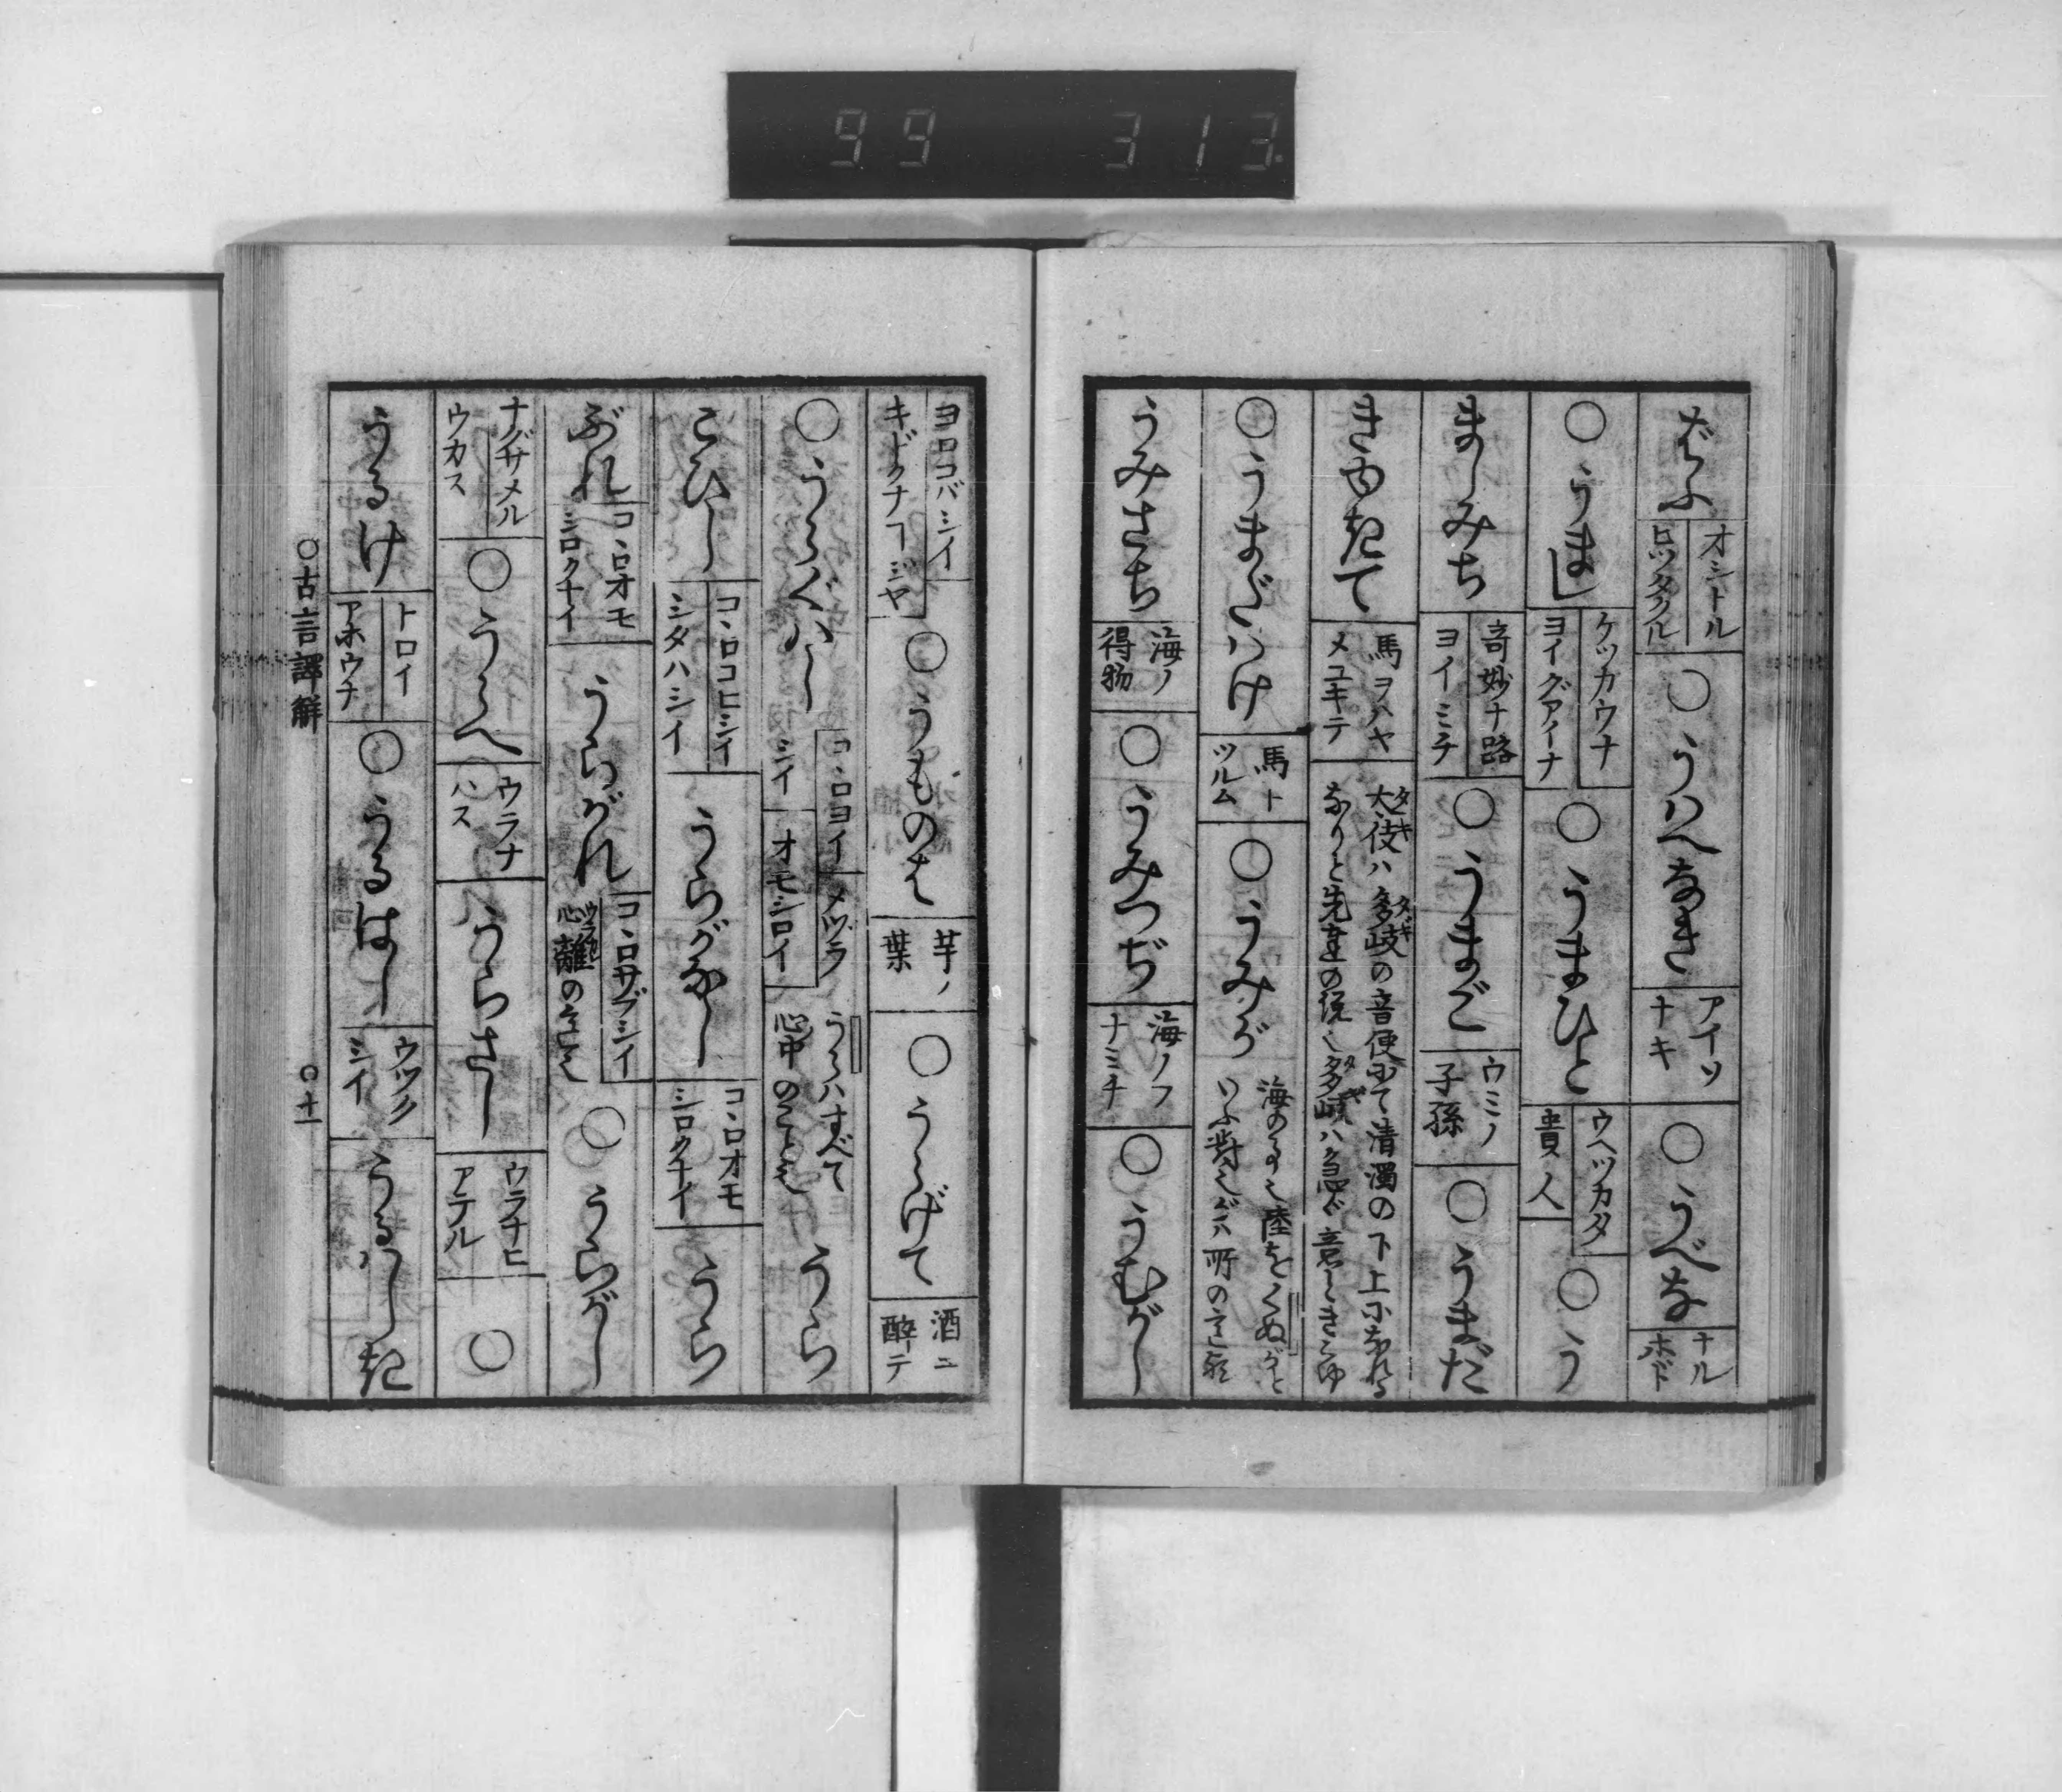 99 313
ばふ オシトル ヒツタクル ○うはへなき アイソナキ ○うべな ナルホド
○うまし ケツカウナ ヨイグアイナ ○うまひと ウヘツカタ 貴人 ○う
ましみち 奇妙ナ路 ヨイミチ ○うまご ウミノ子孫 ○うまだ
きゆきたて 馬ヲハヤメユキテ
大伎ハ多岐の音便にて清濁の下上になれる
なりと先達の説
○うまぐはけ 馬トツルム ○うみが 海の
うみさち 海ノ得物 ○うみつぢ 海ノフナミチ ○うむがし
ヨロコバシイ キドクナコジヤ ○うものは 芋ノ葉 ○うらげて 酒ニ酔テ
○うらぐはし コヽロヨイ メヅラシイ オモシロイ うらハすべて心中のこと也 うら
こひし コヽロコヒシイ シタハシイ うらがなし コヽロオモシロクナイ うら
ぶれ コヽロオモシロクナイ うらがれ コヽロサブシイ 心離の意也 ○うらがし
ナグサメル ウカス ○うらへ ウラナハス うらさし ウラナヒアテル ○
うるけ トロイ アホウナ ○うるはし ウツクシイ うるはしき
○古言譯解 ○十一